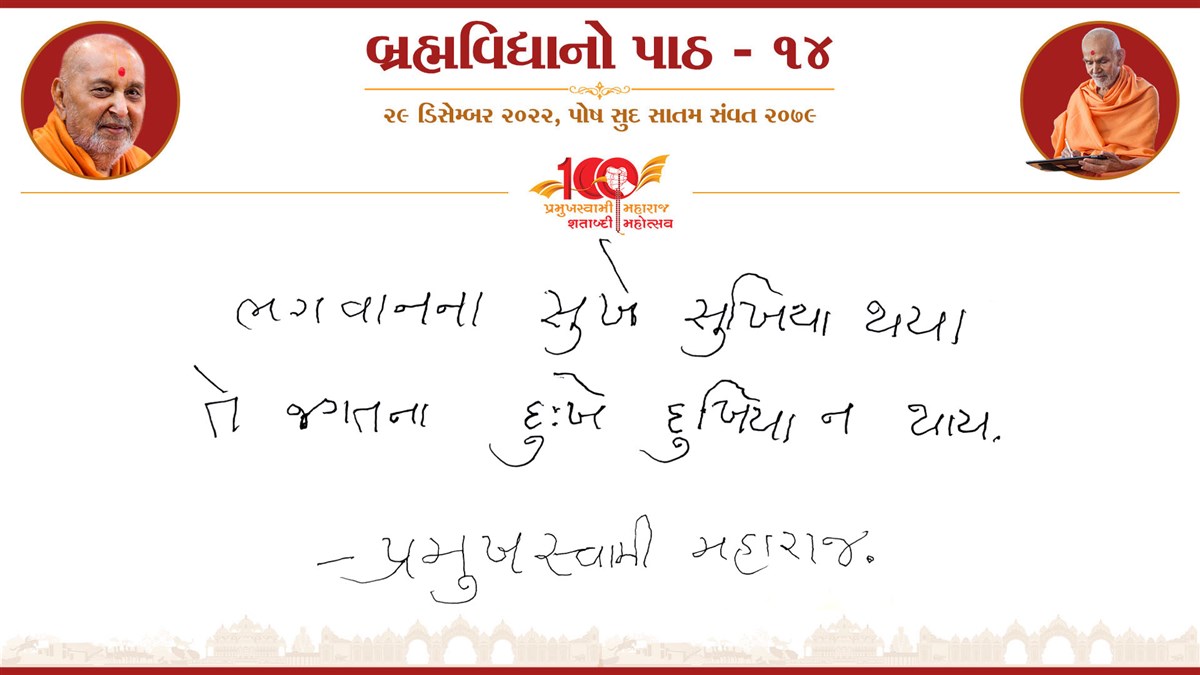 બ્રહ્મવિદ્યાનો પાઠ - ૧૪
૨૯ ડિસેમ્બર ૨૦૨૨, પોષ સુદ સાતમ સંવત ૨૦૭૯
100
પ્રમુખસ્વામી મહારાજ
શતાબ્દી મહોત્સવ
ભગવાનના સુખે સુખિયા થયા
તે જગતના દુઃખે દુખિયા ન થાય.
- પ્રમુખસ્વામી મહારાજ.